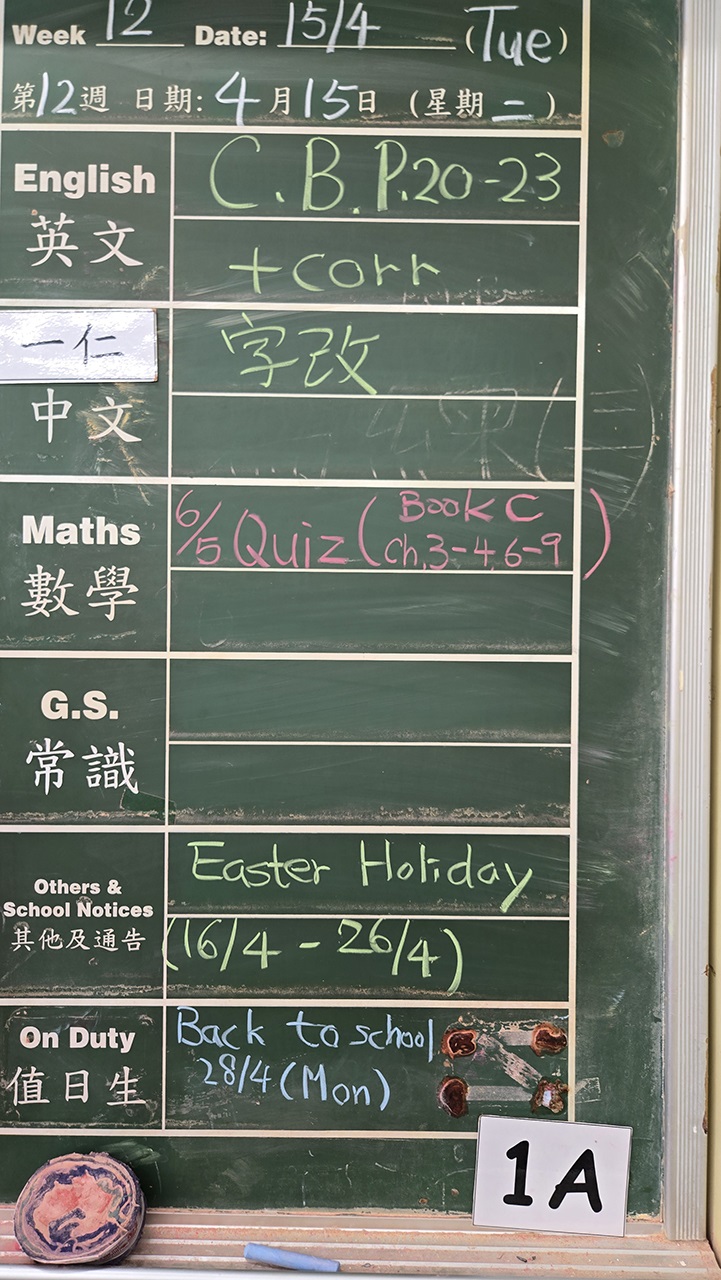 Week 12 Date: 15/4 (Tue)
第12週 日期: 4月15日 (星期二)
English C.B.P.20-23
英文 +corr
一仁 字改
中文
Maths 6/5 Quiz (Book C Ch.3-4,6-9)
數學
G.S.
常識
Others & School Notices Easter Holiday
其他及通告 (16/4 - 26/4)
On Duty Back to school
值日生 28/4 (Mon)
1A